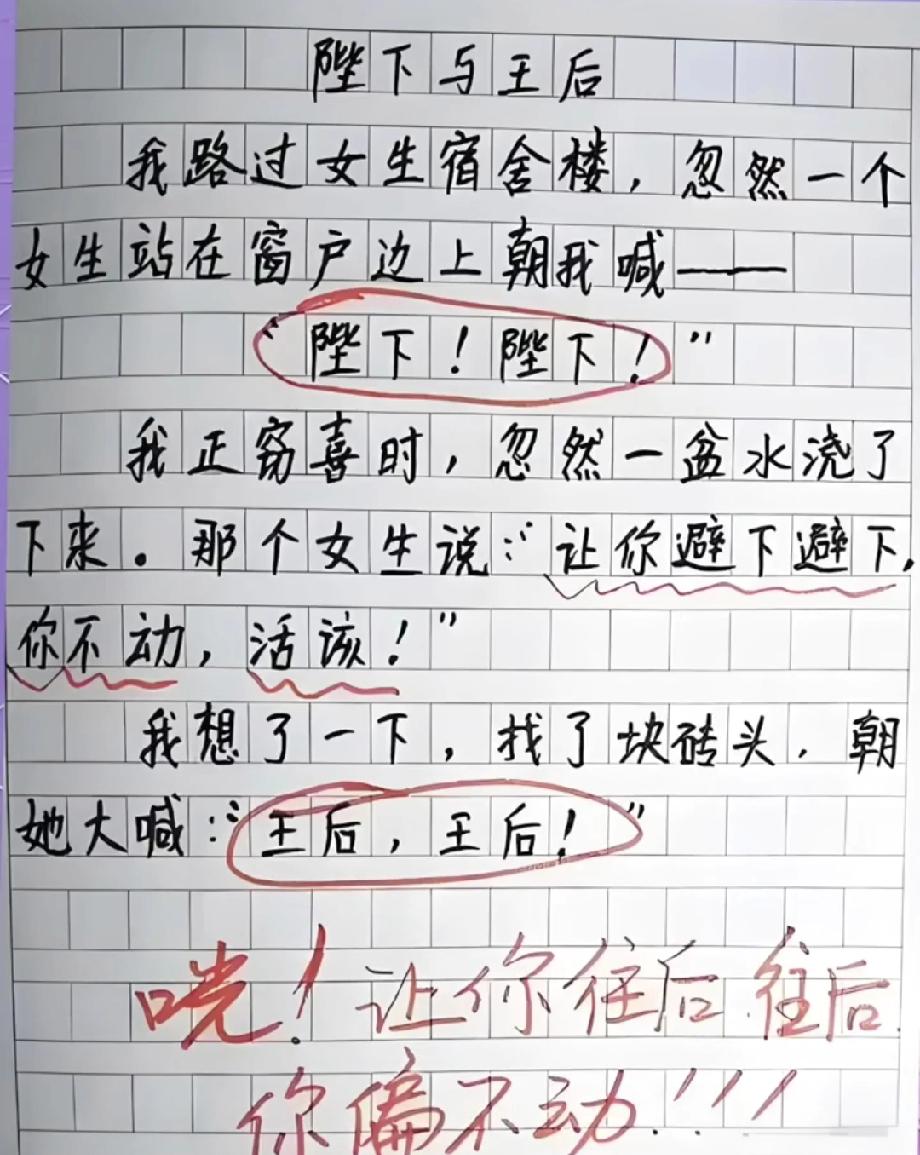 陛下与王后
我路过女生宿舍楼，忽然一个
女生站在窗户边上朝我喊——
“陛下！陛下！”
我正窃喜时，忽然一盆水浇了
下来。那个女生说：“让你避下避下，
你不动，活该！”
我想了一下，找了块砖头，朝
她大喊：“王后，王后！”
咣！让你往后往后
你偏不动！！！